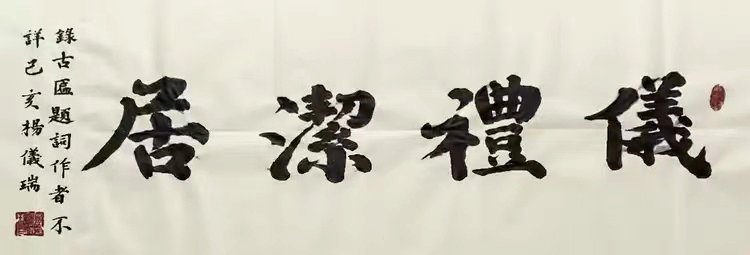 儀禮潔居
錄古區題詞作者不
詳己亥楊儀瑞